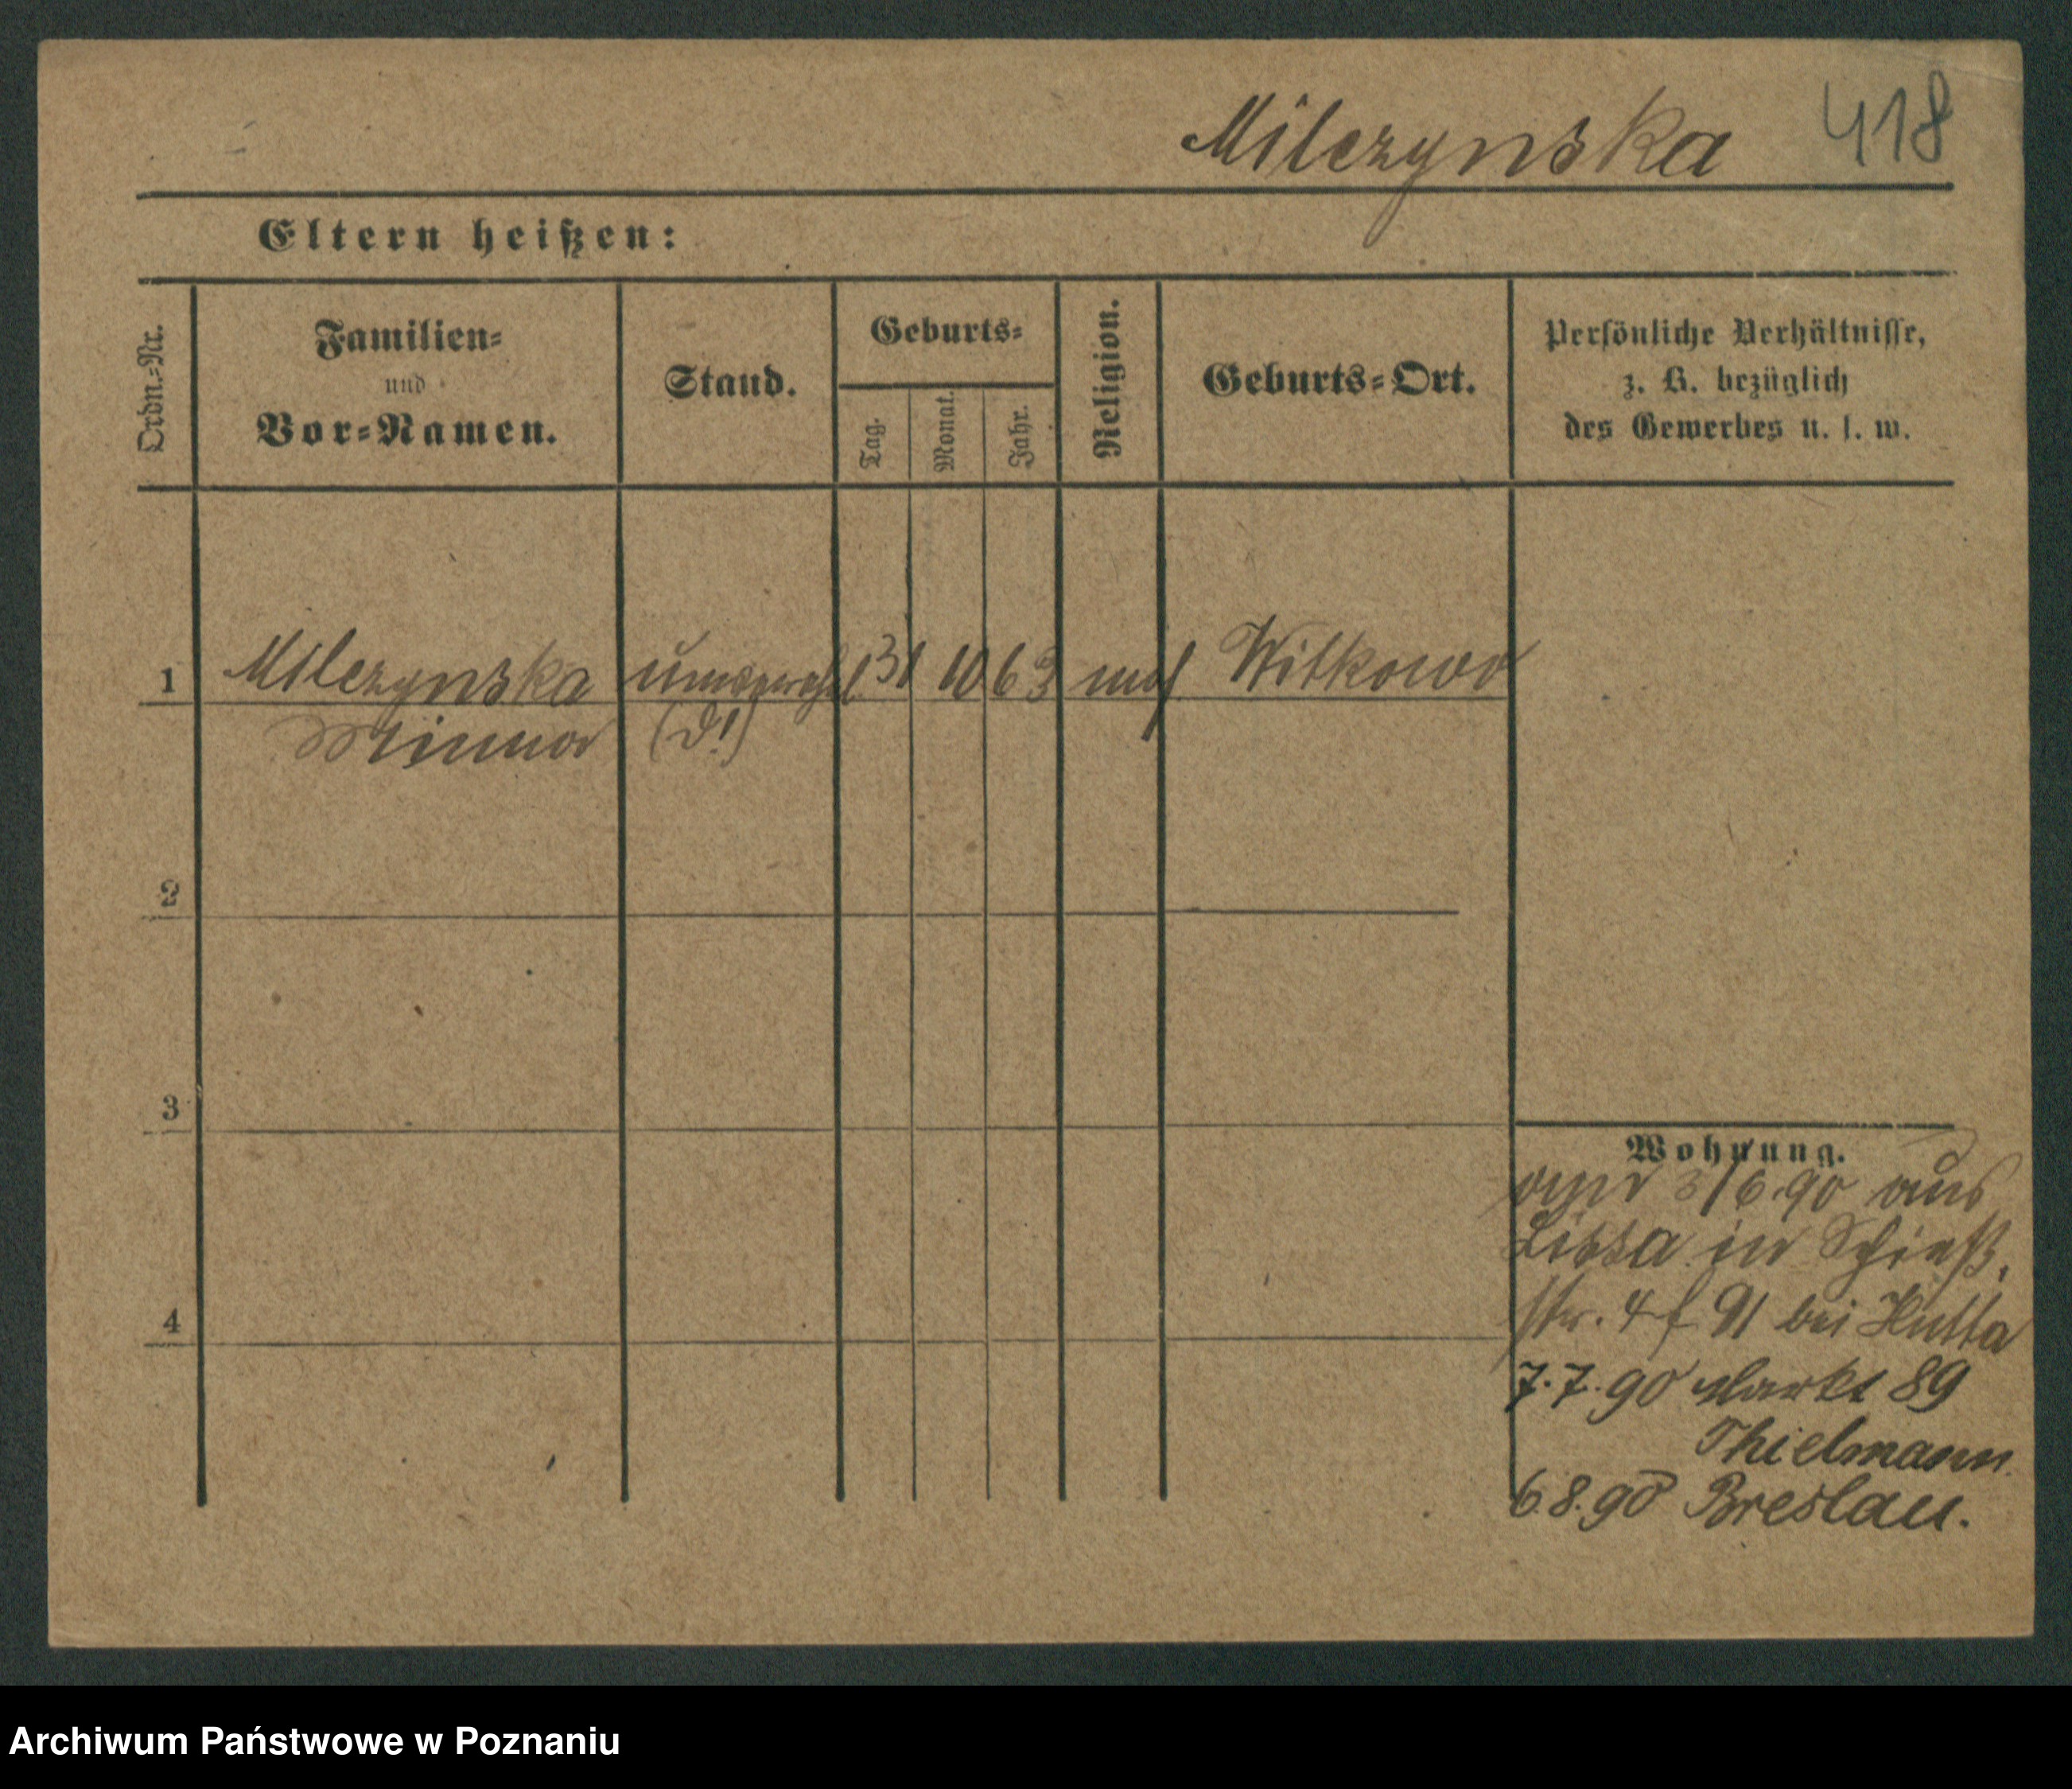 Milczynska 418
Eltern heißen:
Ordn.-Nr.
Familien-
und
Vor-Namen.
Stand.
Geburts-
Tag.
Monat.
Jahr.
Religion.
Geburts-Ort.
Persönliche Verhältnisse,
z. B. bezüglich
des Gewerbes u. s. w.
1 Milczynska 31 10 63 mos Witkowo
Minna (d!)
2
3
4
Wohnung.
3/6.90 aus
Lissa in Schieß,
str. 4 f 91 bei Hutta
7.7.90 Markt 89
Thielmann.
6.8.90 Breslau.
Archiwum Państwowe w Poznaniu